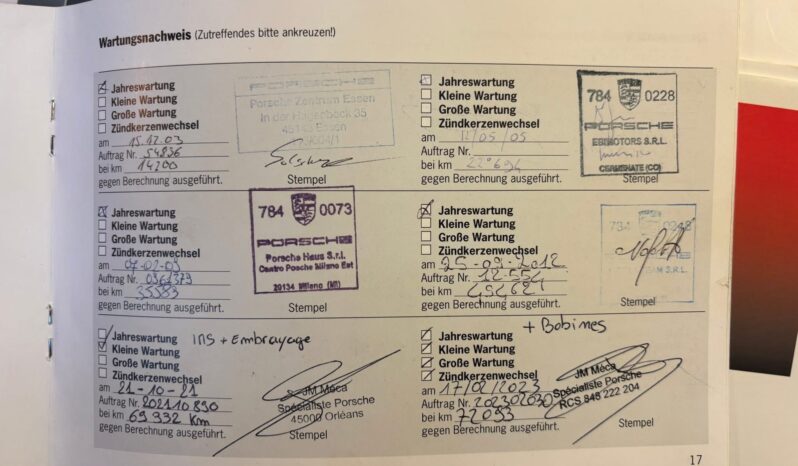 Wartungsnachweis (Zutreffendes bitte ankreuzen!)
Jahreswartung
Kleine Wartung
Große Wartung
Zündkerzenwechsel
am 15.12.03
Auftrag Nr. 54836
bei km 14200
gegen Berechnung ausgeführt.
PORSCHE
Porsche Zentrum Essen
In der Hagenbeck 35
45143 Essen
Stempel
Jahreswartung
Kleine Wartung
Große Wartung
Zündkerzenwechsel
am 12/05/05
Auftrag Nr.
bei km
gegen Berechnung ausgeführt.
784 0228
PORSCHE
EBIMOTORS S.R.L.
CERMENATE (CO)
Stempel
Jahreswartung
Kleine Wartung
Große Wartung
Zündkerzenwechsel
am 07-02-09
Auftrag Nr.
bei km 35583
gegen Berechnung ausgeführt.
784 0073
PORSCHE
Porsche Haus S.r.l.
Centro Porsche Milano Est
20134 Milano (MI)
Stempel
Jahreswartung
Kleine Wartung
Große Wartung
Zündkerzenwechsel
am 25-09-2012
Auftrag Nr. 12.554
bei km
gegen Berechnung ausgeführt.
S.R.L.
Stempel
Jahreswartung IMS + Embrayage
Kleine Wartung
Große Wartung
Zündkerzenwechsel
am 21-10-21
Auftrag Nr. 20210890
bei km 69932 Km
gegen Berechnung ausgeführt.
JM Méca
Spécialiste Porsche
45000 Orléans
Stempel
+ Bobines
Jahreswartung
Kleine Wartung
Große Wartung
Zündkerzenwechsel
am 17/02/2023
Auftrag Nr. 202302030
bei km 72093
gegen Berechnung ausgeführt.
JM Méca
Spécialiste Porsche
RCS 848 222 204
Stempel
17